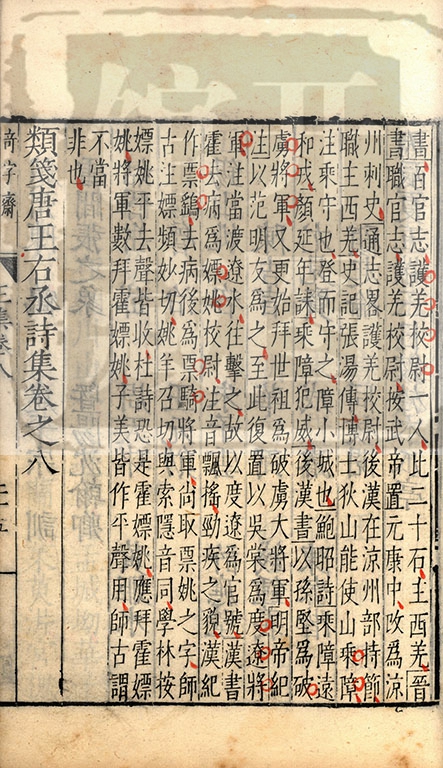 書百官志護羌校尉一人比二千石主西羌晉
書職官志護羌校尉按武帝置元康中改爲涼
州刺史通志畧護羌校尉後漢在涼州部持節
職主西羌史記張湯傳博士狄山能使山乘障
注乘守也登而守之障小城也鮑昭詩乘障遠
和戎顏延年誄乘障犯威後漢書以孫堅爲破
虜將軍又更始拜世祖爲破虜大將軍明帝紀
注以范明友爲之至此復置以吳棠爲度遼將
軍注當渡遼水往擊之故以度遼爲官號漢書
霍去病爲嫖姚校尉注音飄搖勁疾之貌漢紀
作票鷂去病後爲票騎將軍尚取票姚之字師
古注嫖頻妙切姚羊召切與索隱音同學林按
嫖姚平去聲皆收杜詩恐是霍嫖姚應拜霍嫖
姚將軍數拜霍嫖姚子美皆作平聲用師古謂
不當
非也
類箋唐王右丞詩集卷之八
奇字齋
集卷八